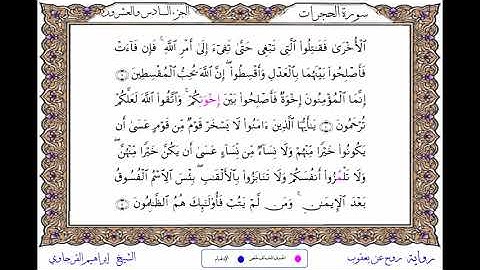 سورة الحجرات
الجزء السادس والعشرون
ٱلۡأُخۡرَىٰ فَقَٰتِلُواْ ٱلَّتِي تَبۡغِي حَتَّىٰ تَفِيٓءَ إِلَىٰٓ أَمۡرِ ٱللَّهِۚ فَإِن فَآءَتۡ
فَأَصۡلِحُواْ بَيۡنَهُمَا بِٱلۡعَدۡلِ وَأَقۡسِطُوٓاْۖ إِنَّ ٱللَّهَ يُحِبُّ ٱلۡمُقۡسِطِينَ ۝٩
إِنَّمَا ٱلۡمُؤۡمِنُونَ إِخۡوَةٞ فَأَصۡلِحُواْ بَيۡنَ إِخۡوَتِكُمۡۚ وَٱتَّقُواْ ٱللَّهَ لَعَلَّكُمۡ
تُرۡحَمُونَ ۝١٠ يَٰٓأَيُّهَا ٱلَّذِينَ ءَامَنُواْ لَا يَسۡخَرۡ قَوۡمٞ مِّن قَوۡمٍ عَسَىٰٓ أَن
يَكُونُواْ خَيۡرٗا مِّنۡهُمۡ وَلَا نِسَآءٞ مِّن نِّسَآءٍ عَسَىٰٓ أَن يَكُنَّ خَيۡرٗا مِّنۡهُنَّۖ
وَلَا تَلۡمُزُوٓاْ أَنفُسَكُمۡ وَلَا تَنَابَزُواْ بِٱلۡأَلۡقَٰبِۖ بِئۡسَ ٱلِٱسۡمُ ٱلۡفُسُوقُ
بَعۡدَ ٱلۡإِيمَٰنِۚ وَمَن لَّمۡ يَتُبۡ فَأُوْلَٰٓئِكَ هُمُ ٱلظَّٰلِمُونَ ۝١١
رواية روح عن يعقوب
الإدغام
الشيخ إبراهيم الفرجاوي